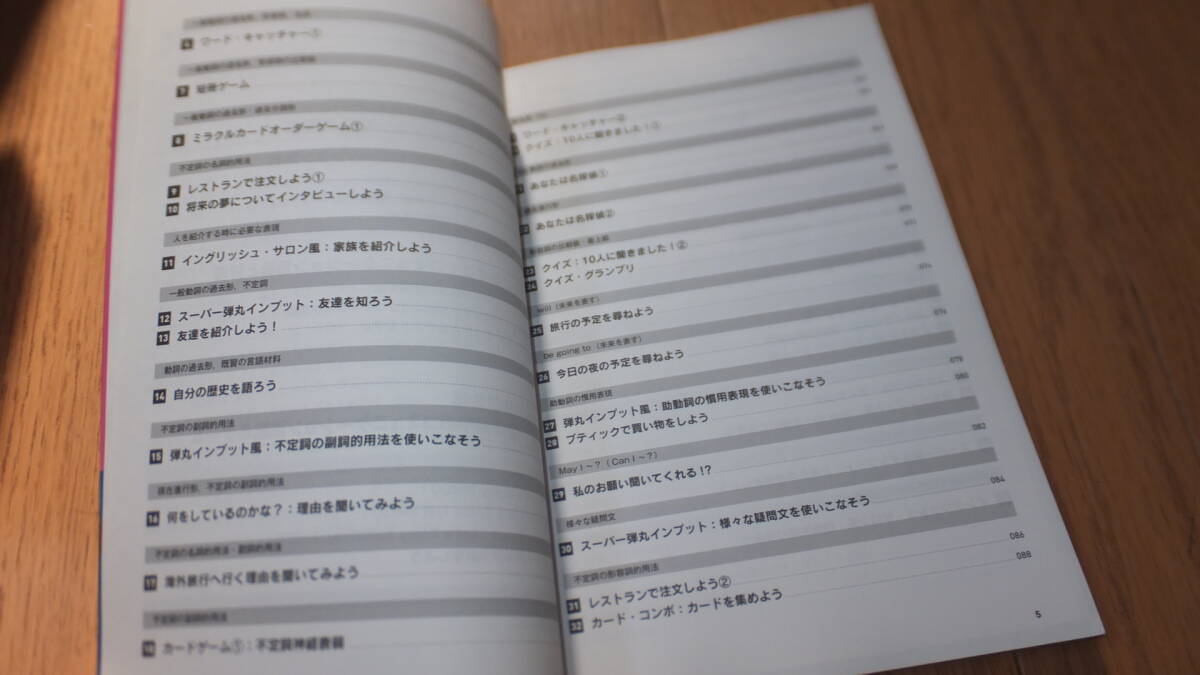 ワード・キャッチャー①
短冊ゲーム
一般動詞の過去形・過去分詞形
8 ミラクルカードオーダーゲーム①
不定詞の名詞的用法
9 レストランで注文しよう①
10 将来の夢についてインタビューしよう
人を紹介する時に必要な表現
11 イングリッシュ・サロン風:家族を紹介しよう
一般動詞の過去形、不定詞
12 スーパー弾丸インプット:友達を知ろう
13 友達を紹介しよう!
動詞の過去形、既習の言語材料
14 自分の歴史を語ろう
不定詞の副詞的用法
15 弾丸インプット風:不定詞の副詞的用法を使いこなそう
現在進行形、不定詞の副詞的用法
16 何をしているのかな?:理由を聞いてみよう
不定詞の名詞的用法・副詞的用法
17 海外旅行へ行く理由を聞いてみよう
不定詞の副詞的用法
18 カードゲーム①:不定詞神経衰弱
ワード・キャッチャー②
クイズ:10人に聞きました!①
あなたは名探偵①
あなたは名探偵②
23 クイズ:10人に聞きました!②
24 クイズ・グランプリ
will(未来を表す)
25 旅行の予定を尋ねよう 074
be going to(未来を表す)
26 今日の夜の予定を尋ねよう 076
助動詞の慣用表現
27 弾丸インプット風:助動詞の慣用表現を使いこなそう 078
28 ブティックで買い物をしよう 080
May I ~?(Can I ~?)
29 私のお願い聞いてくれる!? 082
様々な疑問文
30 スーパー弾丸インプット:様々な疑問文を使いこなそう 084
不定詞の形容詞的用法
31 レストランで注文しよう② 086
32 カード・コンボ:カードを集めよう 088
5